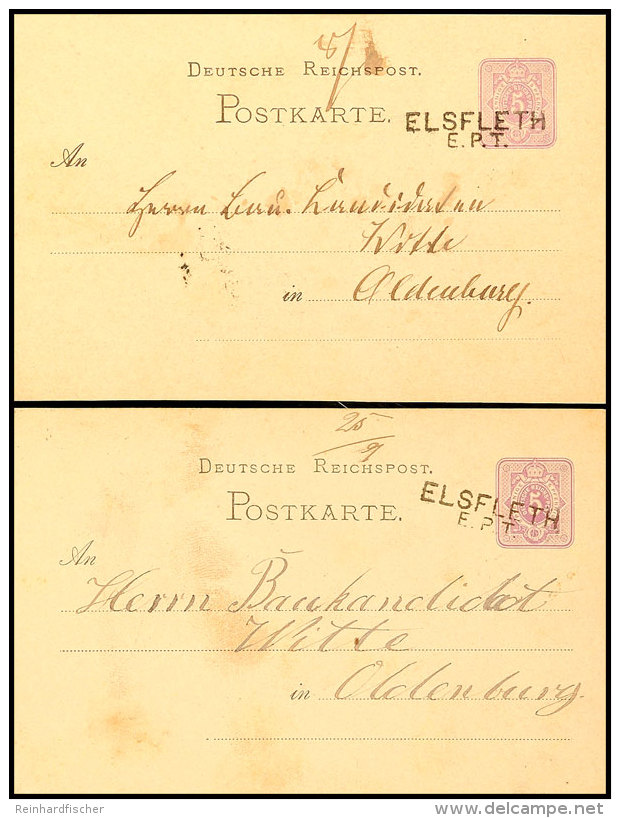 8/
DEUTSCHE REICHSPOST.
POSTKARTE.
5
ELSFLETH
E.P.T.
An
Herrn Bau. Kandidaten
Witte
in Oldenburg.
25/9
DEUTSCHE REICHSPOST.
POSTKARTE.
5
ELSFLETH
E.P.T.
An
Herrn Baukandidat
Witte
in Oldenburg.
Reinhardfischer
delcampe.net